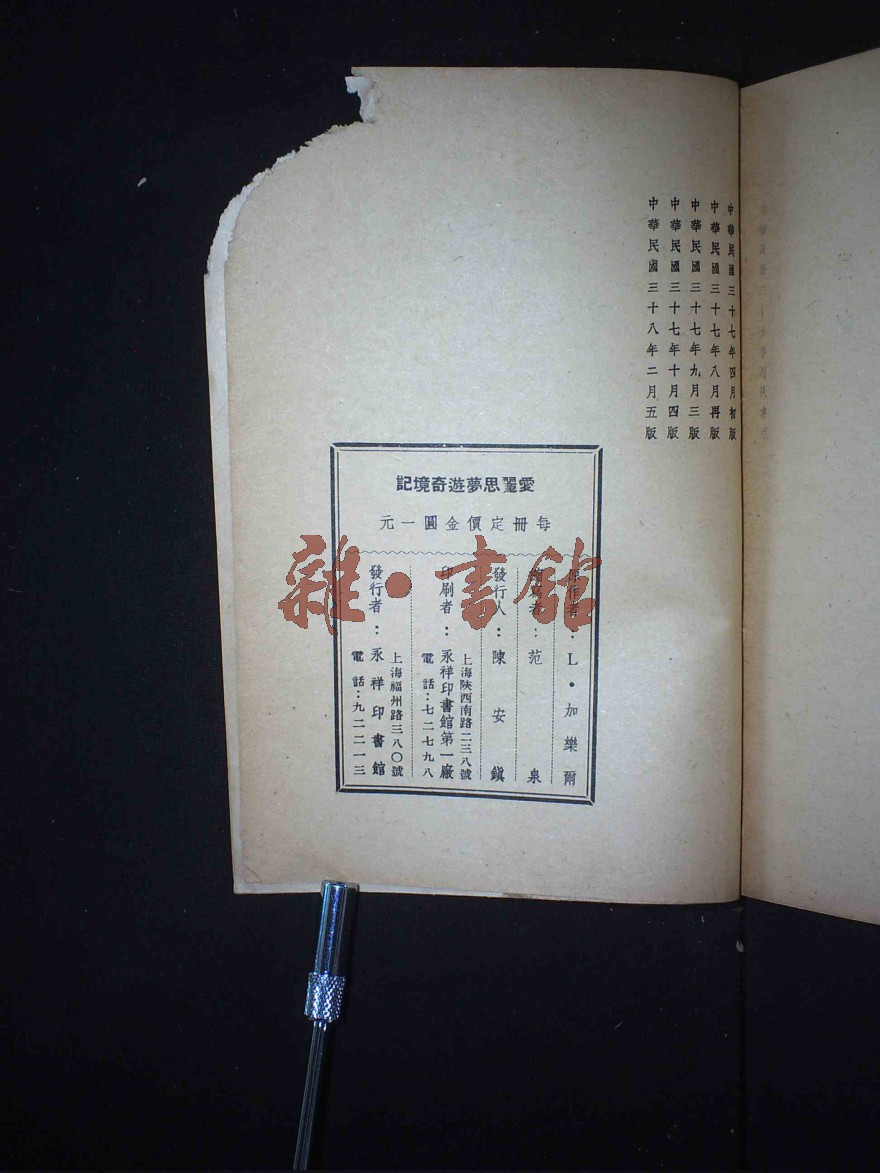 中華民國三十七年四月初版
中華民國三十七年八月再版
中華民國三十七年九月三版
中華民國三十七年十月四版
中華民國三十八年二月五版
愛麗思夢遊奇境記
每冊定價金圓一元
原作者：L·加樂爾
縮寫者：范泉
發行人：陳安鎮
印刷者：永祥印書館第一廠
上海陝西南路二三八號
電話：七二七九八
發行者：永祥印書館
上海福州路三八〇號
電話：九二二一三
雜·書館